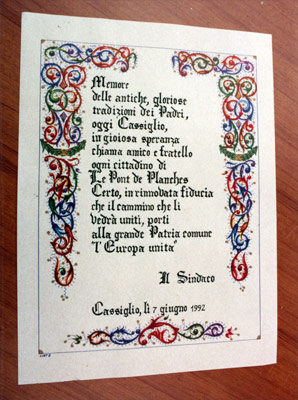 Memore
delle antiche, gloriose
tradizioni dei Padri,
oggi Cassiglio,
in gioiosa speranza
chiama amico e fratello
ogni cittadino di
Le Pont de Planches
Certo, in rinnovata fiducia
che il cammino che li
vedrà uniti, porti
alla grande Patria comune
"l'Europa unita"
Il Sindaco
Cassiglio, lì 7 giugno 1992